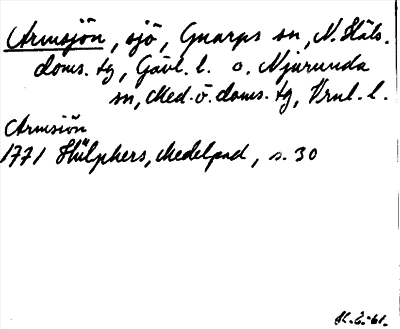 Armsjön, sjö, Gnarps sn, N. Häls.
doms. tg, Gävl. l. o. Njurunda
sn, Med. ö. doms. tg, Vrnl. l.
Armsiön
1771 Hülphers, Medelpad, s. 30